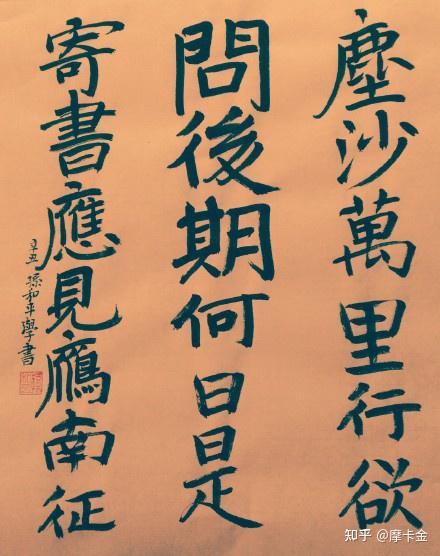 塵沙萬里行欲
問後期何日是
寄書應見鴈南征
辛丑 孫和平學書
知乎 @摩卡金